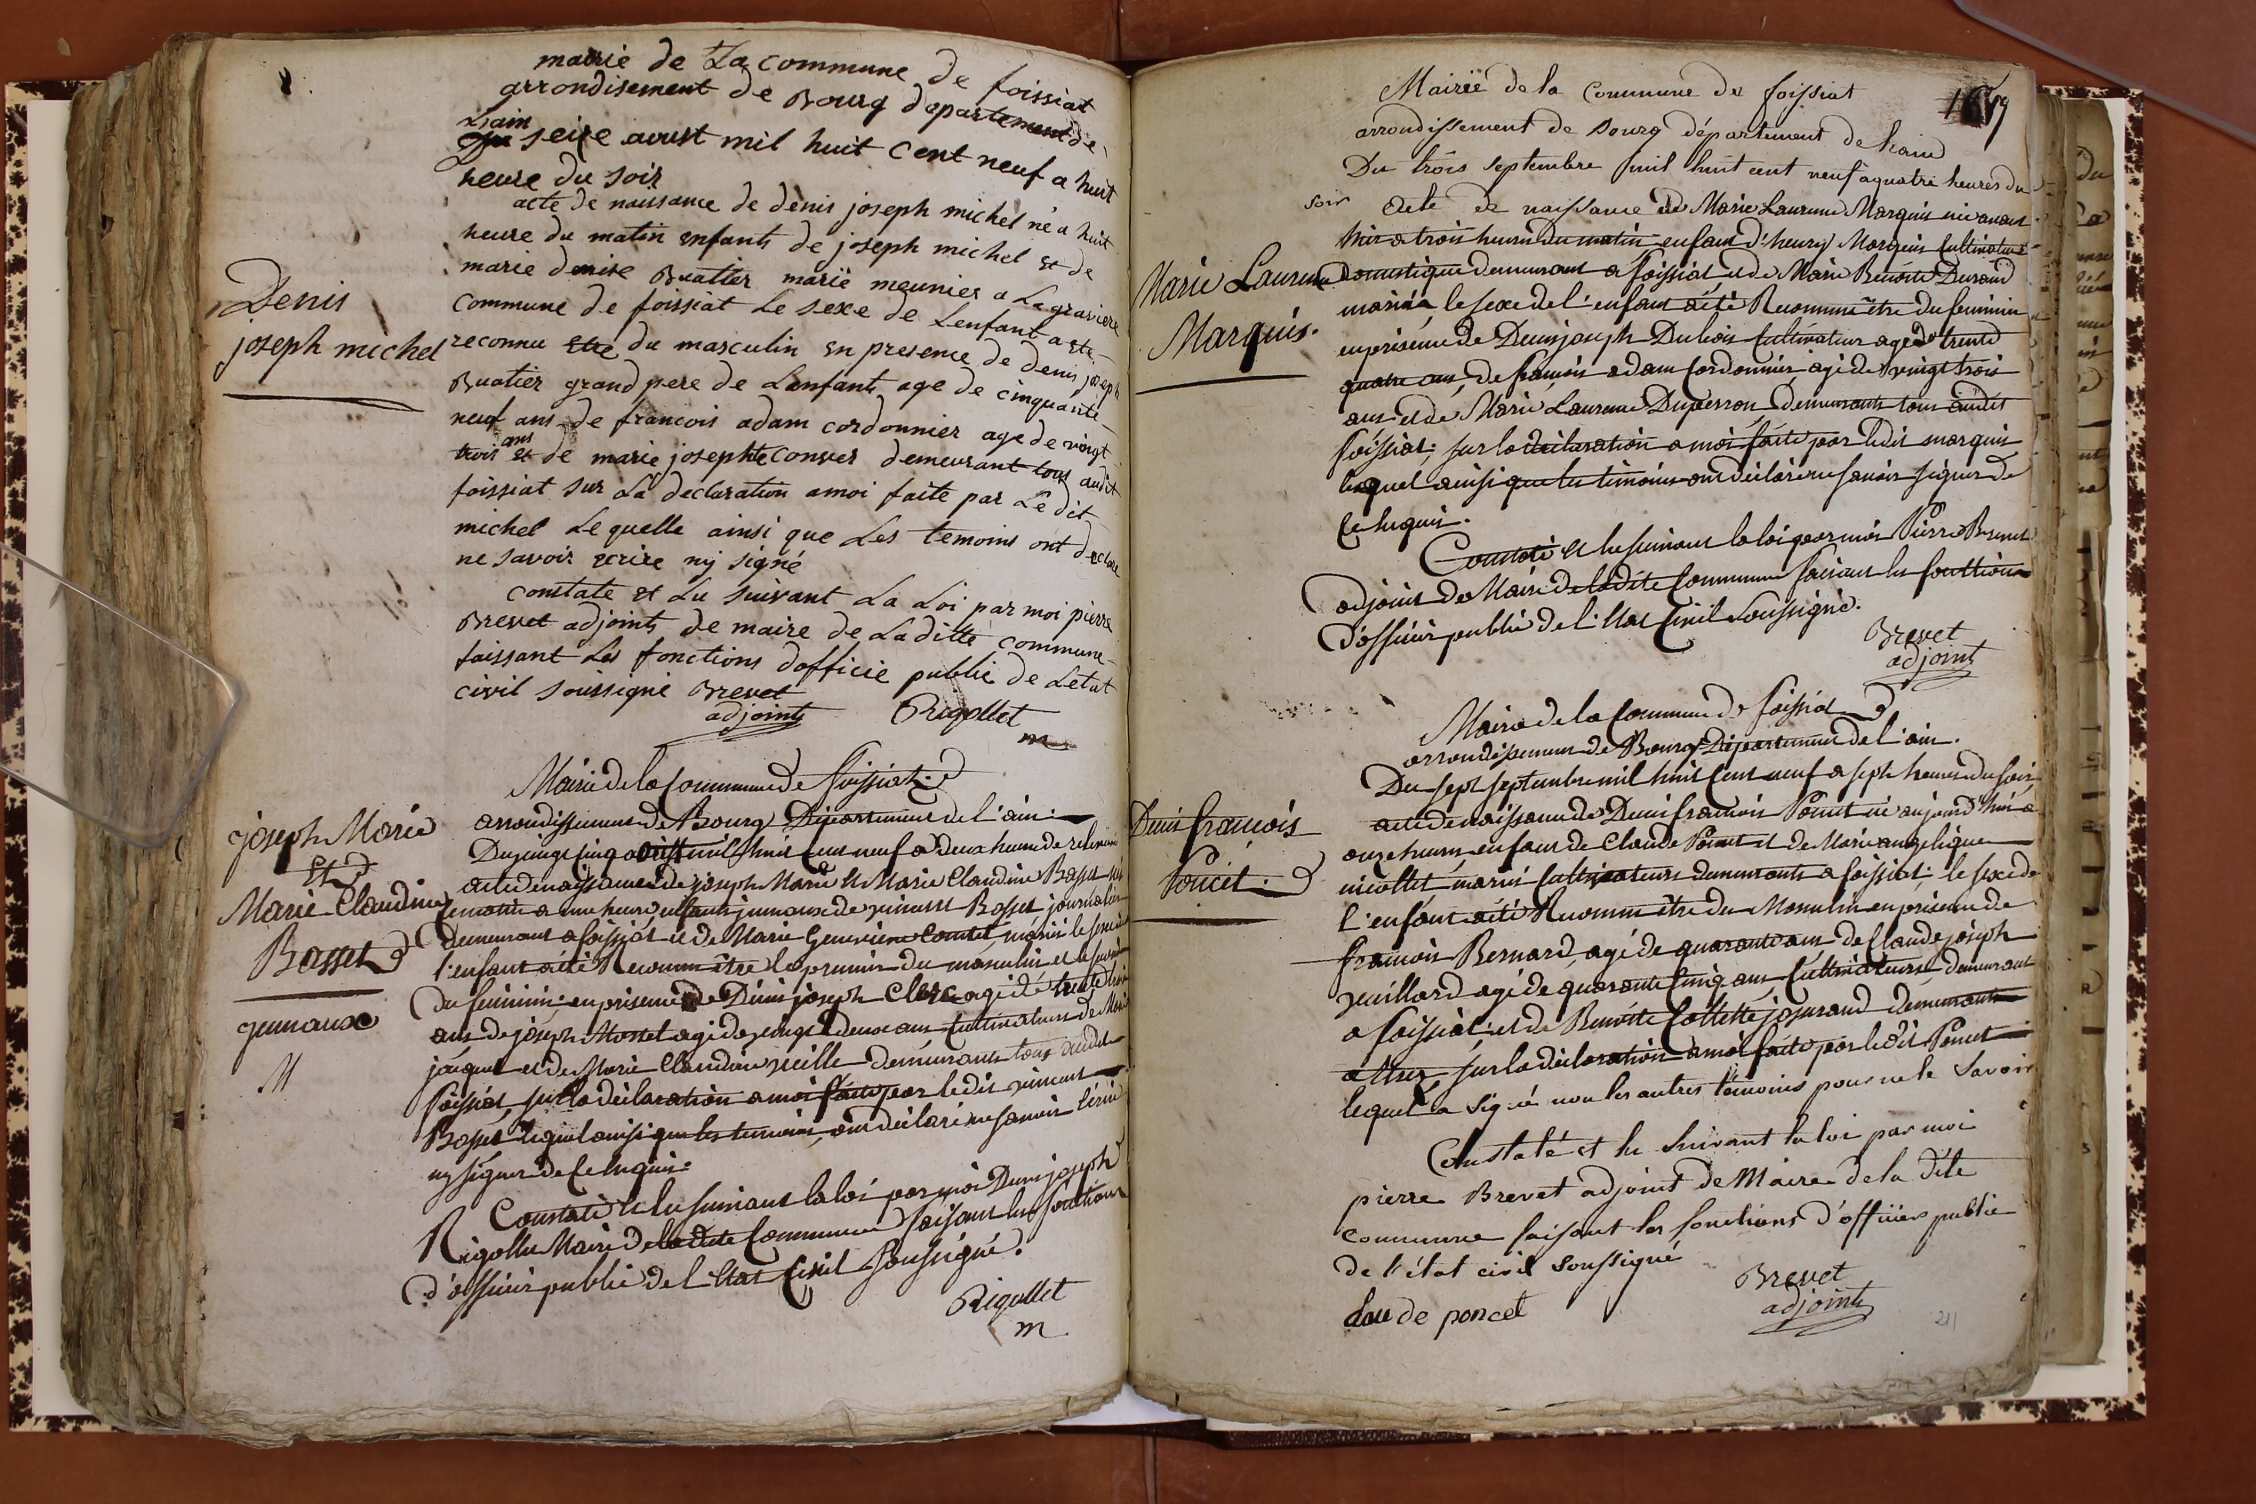 mairie de La commune de foissiat
arrondisement de Bourg departement de
Lain
Du seize aoust mil huit cent neuf a huit
heure du soir
acte de naissance de denis joseph michel né a huit
heure du matin enfants de joseph michel et de
marie denise Buatier marié meunier a Lagraviere
commune de foissiat Le sexe de Lenfant a ete
reconnu etre du masculin en presence de denis joseph
Buatier grand pere de Lenfants age de cinquante
neuf ans de francois adam cordonnier age de vingt
trois ans et de marie josephte Conver demeurant tous audit
foissiat sur La declaration amoi faite par Le dit
michel Le quelle ainsi que Les temoins ont declare
ne savoir ecrire nÿ signé
constate et Lu suivant La Loi par moi pierre
Brevet adjoints de maire de Laditte commune
faissant Les fonctions dofficie public de Letat
civil soussigné Brevet
adjoints Rigollet
m
Denis
joseph michel
Mairie de la Commune de foissiat
arrondissement de Bourg Département de l'ain
Du vingt cinq aoust mil huit cent neuf a deux heure de relevée
acte de naissance de joseph Marie et Marie Claudine Basset nés
ce matin a une heure enfants jumeaux de vincent Basset journalier
demeurant a foissiat et de Marie Genevieve Comtet mariés le sexe de
l'enfant a été Reconnu être le premier du masculin et le second
du feminin en présence de Denis joseph Clerc agé de trente trois
ans de joseph Mosset agé de vingt deux ans Cultivateurs de
jacquet et de Marie Claudine vieille demeurants tous audit
foissiat, sur la déclaration a moi faite par ledit vincent
Basset lequel ainsi que les temoins, ont déclaré ne savoir écrire
ny signer de ce enquis.
Constaté et lu suivant la loi par moi Denis joseph
Rigollet Maire de ladite Commune faisant les fonctions
d'officier public de l'état Civil soussigné.
Rigollet
m
joseph Marie
Et
Marie Claudine
Basset
jumeaux
M
Mairie de la Commune de foissiat
arrondissement de Bourg département de Lain
Du trois septembre mil huit cent neuf à quatre heures du
soir Acte de naissance de Marie Laurence Marquis née avant
hier a trois heures du matin enfant d'henry Marquis Cultivateur
Domestique demeurant a foissiat et de Marie Benoite Durand
mariés le sexe de l'enfant a été Reconnu être du feminin
en présence de Denis joseph Dubois Cultivateur agé de trente
quatre ans, de françois adam Cordonnier, agé de vingt trois
ans et de Marie Laurence Duperron, demeurants tous audit
foissiat; sur la déclaration a moi faite par ledit marquis
lequel ainsi que les témoins ont déclaré ne savoir signer de
ce enquis.
Constaté et lu suivant la loi par moi Pierre Brevet
adjoint de Maire de ladite Commune faisant les fonctions
d'officier public de l'état Civil soussigné.
Brevet
adjoint
Marie Laurence
Marquis.
Maire de la Commune de foissiat
arrondissement de Bourg Département de l'ain.
Du sept septembre mil huit Cent neuf a sept heures du soir
acte de naissance de Denis françois Poncet né aujourd'hui a
onze heures, enfant de Claude Poncet et de Marie angelique
nicollet mariés Cultivateurs demeurants a foissiat; le sexe de
l'enfant a été Reconnu être du Masculin en présence de
françois Bernard agé de quarante ans de Claude joseph
vuillard agé de quarante cinq ans, Cultivateurs demeurant
a foissiat; et de Benoite Collette josserand demeurante
, sur la déclaration a moi faite par ledit Poncet
lequel a signé non les autres témoins pour ne le savoir
Constaté et lu suivant la loi par moi
pierre Brevet adjoint de Maire de la dite
commune faisant les fonctions d'officier public
de l'état civil soussigné
Brevet
adjoints
de poncet
Denis françois
Poncet.